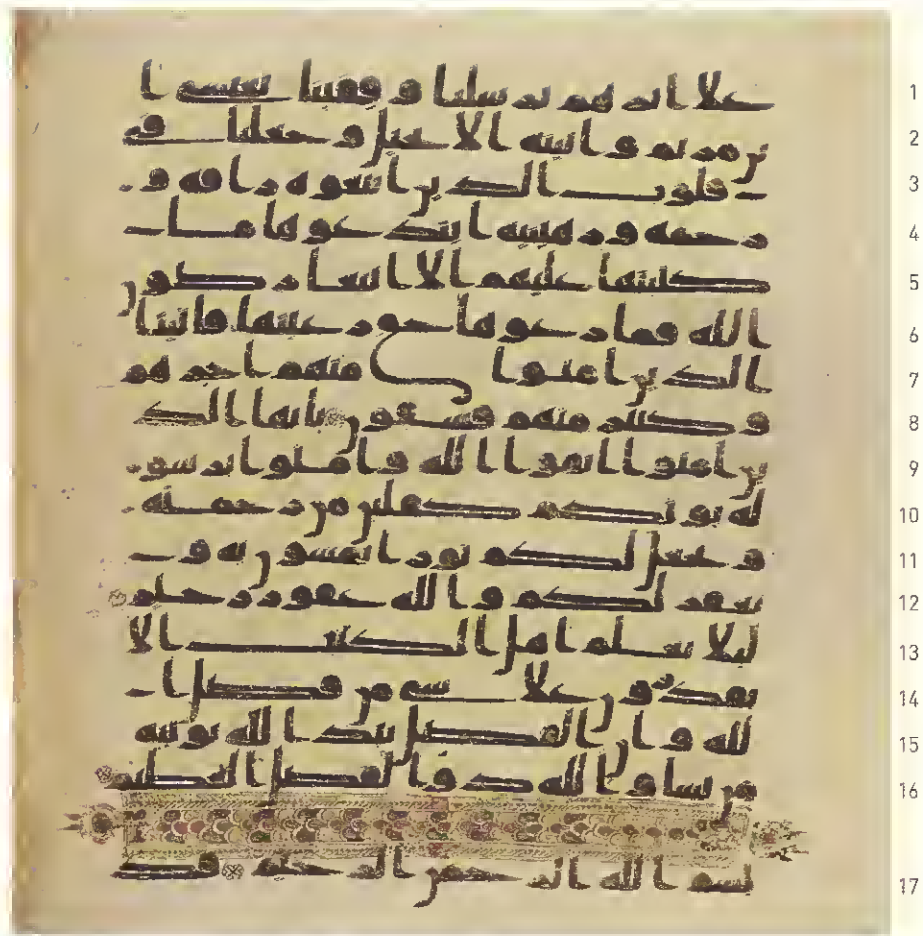 1 علا اثرهم برسلنا وقفينا بعيسى ا
2 بن مريم واتينه الانجيل وجعلنا في
3 قلوب الذين اتبعوه رافة و
4 رحمة ورهبنية ابتدعوها ما
5 كتبنها عليهم الا ابتغا رضون
6 الله فما رعوها حق رعيتها فاتينا
7 الذين امنوا منهم اجرهم
8 وكثير منهم فسقون يايها الذ
9 ين امنوا اتقوا الله وامنوا برسو
10 له يوتكم كفلين من رحمته
11 ويجعل لكم نورا تمشون به و
12 يغفر لكم والله غفور رحيم
13 ليلا يعلم اهل الكتب الا
14 يقدرون علا شي من فضل ا
15 لله وان الفضل بيد الله يوتيه
16 من يشا والله ذو الفضل العظيم
17 بسم الله الرحمن الرحيم قد